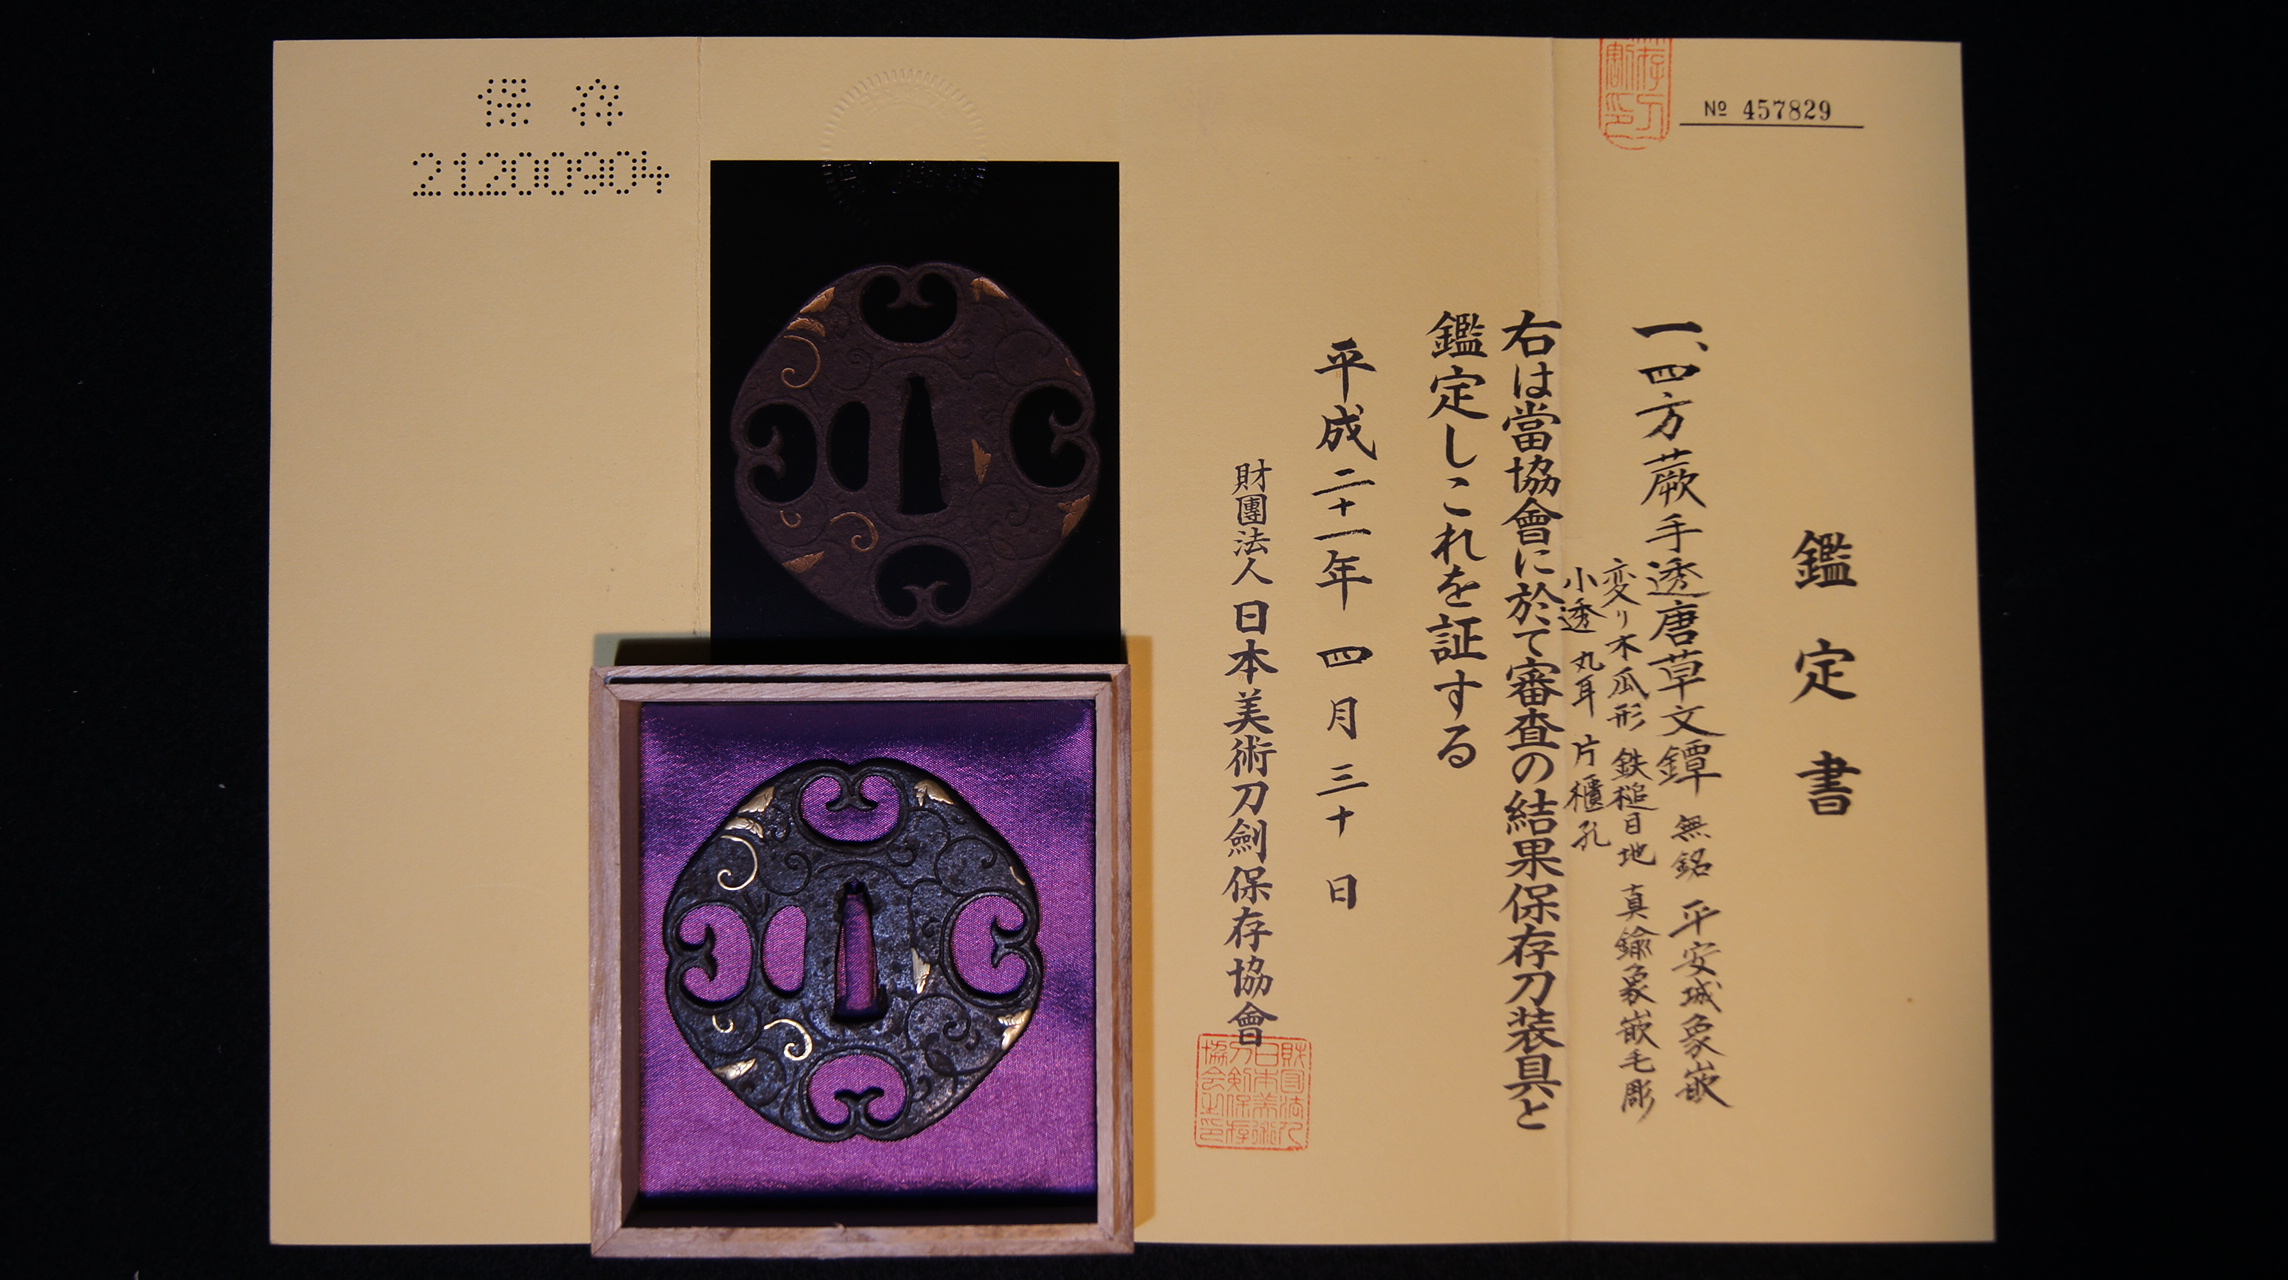 № 457829
鑑定書
一、四方蕨手透唐草文鐔 無銘 平安城象嵌
変り木瓜形 鉄槌目地 真鍮象嵌毛彫
小透 丸耳 片櫃孔
右は當協會に於て審査の結果保存刀装具と
鑑定しこれを証する
平成二十一年 四月 三十日
財團法人 日本美術刀劍保存協會
財団法人日本美術刀剣保存協会之印
保存
21200904